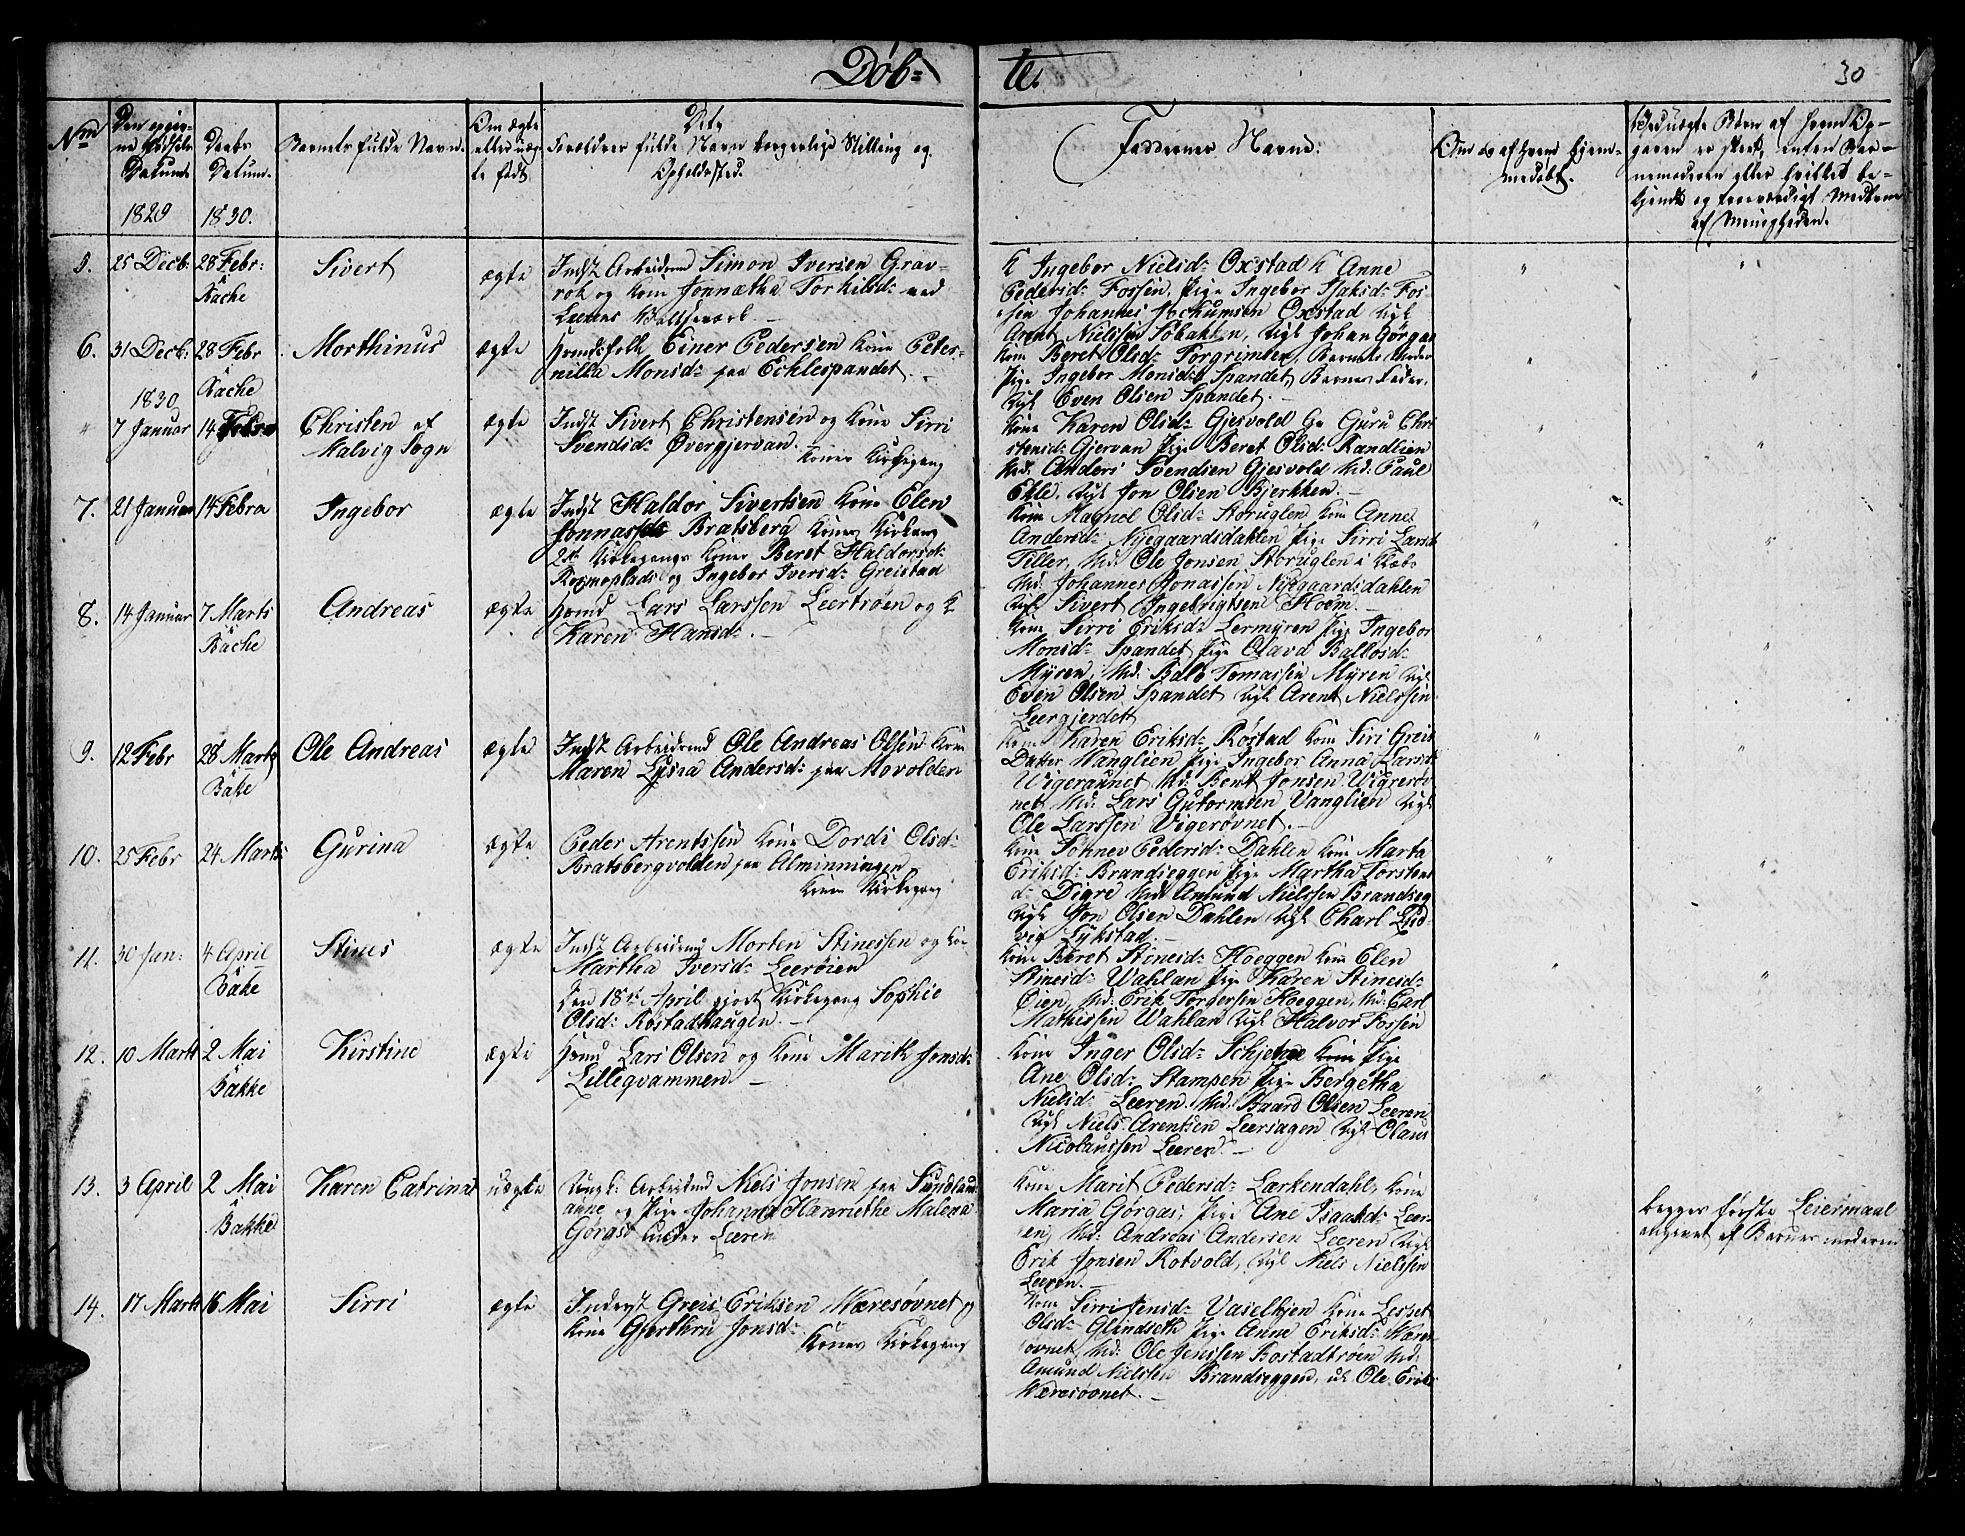 Døb=
te.
30
Nm
Den opgiv-
ne Fødsels
Datum
1829
Daabs
Datum.
1830.
Barnets fulde Navn.
Om ægte
eller uæg-
te født
Dets
Forældres fulde Navn borgerlige Stilling og
Opholdssted.
Faddernes Navne:
Om og af hvem hjem-
medøbt.
Ved uægte Børn af hvem Op-
gaven er skeet, enten Bar-
nemoderen eller hvilket be-
kjendt og troeværdigt Medlem
af Menigheden.
5. 25 Decb: 28 Febr: Sivert ægte
Bache
Indst Arbeidsmd Simon Iversen Grav-
rok og Kone Jonnætha Torkilsd: ved
Leeren
K Ingebor Nielsd: Oxstad K Anne
Pedersd: Fossen, Pige Ingebor Isaksd: Fos-
sen Johannes Jochumsen Oxstad Ugk
Arent Nielssen Sobakken, Ugk Johan Gørgas
6. 31 Decb: 28 Febr Morthinus ægte
Bache
Huusfolk Einer Pedersen Kone Peter-
nilla Monsd: paa Ecklespandet. -
Kone Beret Olsd: Torgrimlien, Barnets Moder
Pige Ingebor Monsd: Spandet, Barnets Fader,
Ugk Even Olsen Spandet. -
1830
" 7 Januar 14 Febra Christen af ægte
Malvig Sogn
Indst Sivert Christensen og Kone Sirri
Svendsd: Øvergjervan. -
Konens Kirkegang
Kone Karen Olsd: Gjesvold Guru Chri
stensd: Gjervan Pige Beret Olsd: Randlien
Md: Anders Svendsen Gjesvold Md: Paul
Ekle, Ugk Jon Olsen Bjerkken. -
7. 21 Januar 14 Febra Ingebor ægte
Indst Haldor Sivertsen Kone Elen
Jonnasd: Bratsberg Konens Kirkegang
Kirkegangs Koner Beret Haldorsd:
og Ingebor Iversd: Greistad
Kone Magnel Olsd: Storuglen Kone Anne
Andersd: Nyegaardsdahlen Pige Sirri Larsd:
Tiller, Md: Ole Jonsen Storuglen i Klæb:
Md: Johannes Jonassen Nyegaardsdahlen
Ugk Sivert Ingebrigtsen Hoem. -
8. 14 Januar 7 Marts Andreas ægte
Bäche
Huusmd Lars Larssen Leertrøen og K
Karen Hansd: -
Kone Sirri Eriksd: Lermyren Pige Ingebor
Monsd: Spandet Pige Olava Ballosd:
Myren, Md: Balo Tomassen Myren Ugk
Even Olsen Spandet Ugk Arent Nielssen
Leergjerdet
9. 12 Febr 28 Marts Ole Andreas ægte
Bäke
Indst Arbeidsmd Ole Andreas Olsen Kone
Maren Lysia Andersd: paa Movolden
Kone Karen Eriksd: Røstad Kone Siri Greis
Datter Wanglien Pige Ingebor Anna Larsd:
Wigeraunet Md: Bent Jonsen Vigerøv-
net, Md: Lars Gutormsen Vanglien Ugk
Ole Larssen Vigerøvnet. -
10. 25 Febr 24 Marts Gurina ægte
Peder Arentssen Kone Dordi Olsd:
Bratsbergvolden paa Alminningen
Konens Kirkegang
Kone Søhnev Pedersd: Dahlen Kone Marta
Eriksd: Brandseggen Pige Martha Torstens
d: Digre Md: Amund Nielssen Brandseg
Ugk Jon Olsen Dahlen, Ugk Charl Lud-
vig Lykstad. -
11. 30 Jan: 4 April Stines ægte
Bäke
Indst Arbeidsmd Morten Stinessen og Ko-
Martha Iversd: Leerøien
Den 18de April gjort Kirkegang Sophie
Olsd: Rostadhaugen. -
Kone Beret Stinesd: Hoeggen Kone Elen
Stinesd: Wahlan Pige Karen Stinesd:
Øien, Md: Erik Torgersen Hoeggen, Md: Carl
Mathissen Wahlan Ugk Halvor Fossen
12. 10 Marts 2 Mai Kirstine ægte
Bakke
Huusmd Lars Olsen og Kone Marith Jonsd:
Lillegvammen. -
Kone Inger Olsd: Schjetne Kone Pige
Ane Olsd: Stampen Pige Bergetha
Nielsd: Leeren. Md: Baard Olsen Leeren
Ugk Niels Arentsen Leersagen Ugk Olaus
Nicolaussen Leeren. -
13. 3 April 2 Mai Karen Catrina uægte
Bakke
Ungk: Arbeidsmd Niels Jonsen paa Sundlau-
anne og Pige Johanna Hanriethe Malena
Gørgas under Leeren
Kone Marit Pedersd: Lærkendahl, Kone
Maria Gørgas, Pige Ane Isaaksd: Leer-
en, Md: Andreas Andersen Leeren Ugk
Erik Jonsen Rotvold, Ugk Niels Nielssen
Leeren. -
begges første Leiermaal
angivet af Barnemoderen
14. 17 Marts 16 Mai Sirri ægte
Inderst Greis Eriksen Weresøvnet og
Kone Gjerthru Jonsd:
Konens Kirkegang
Kone Sirri Jensd: Vaselhjen Kone Lesset
Olsd: Glindseth Pige Anne Eriksd: Weres-
øvnet, Md: Ole Jenssen Bostadtrøen Md:
Amund Nielssen Brandseggen, uk Ole Eriks
Weresøvnet. -